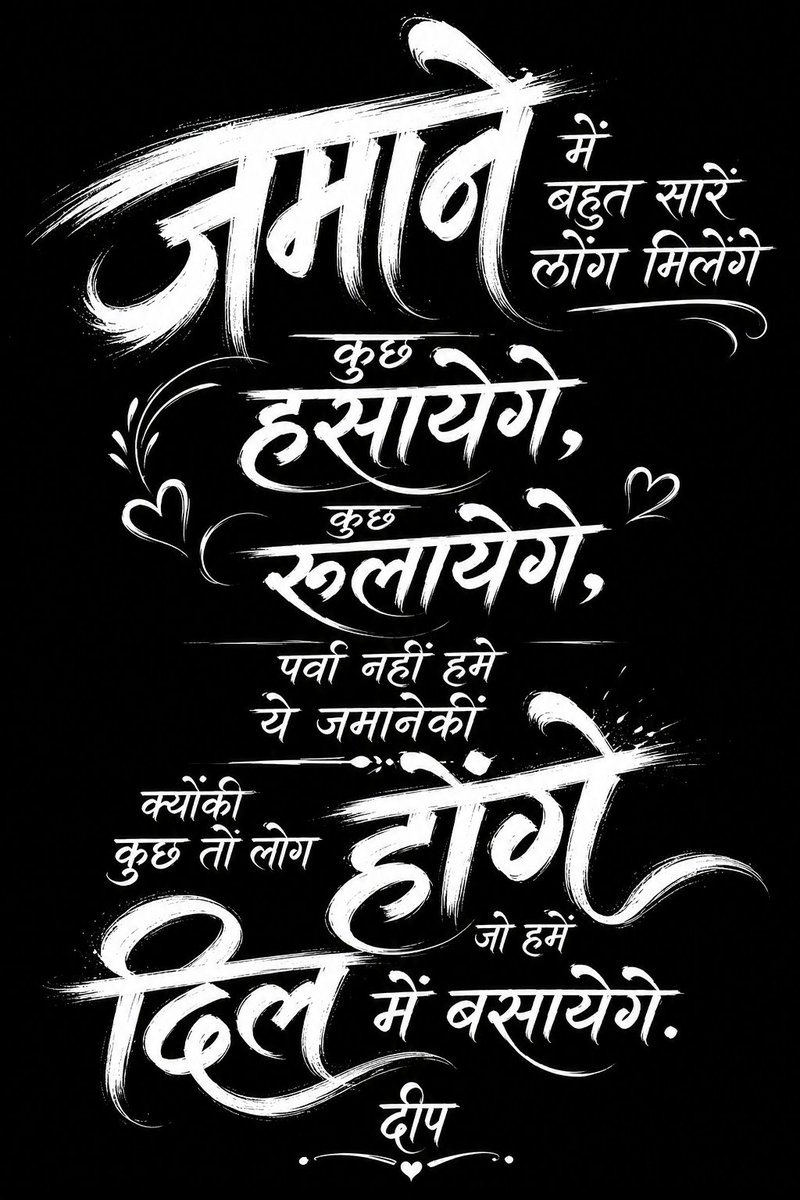 जमाने में
बहुत सारें
लोंग मिलेंगे
कुछ
हसायेगे,
कुछ
रूलायेगे,
पर्वा नहीं हमे
ये जमानेकीं
क्योंकी
कुछ तों लोग
होंगे
जो हमें
दिल में बसायेगे.
दीप